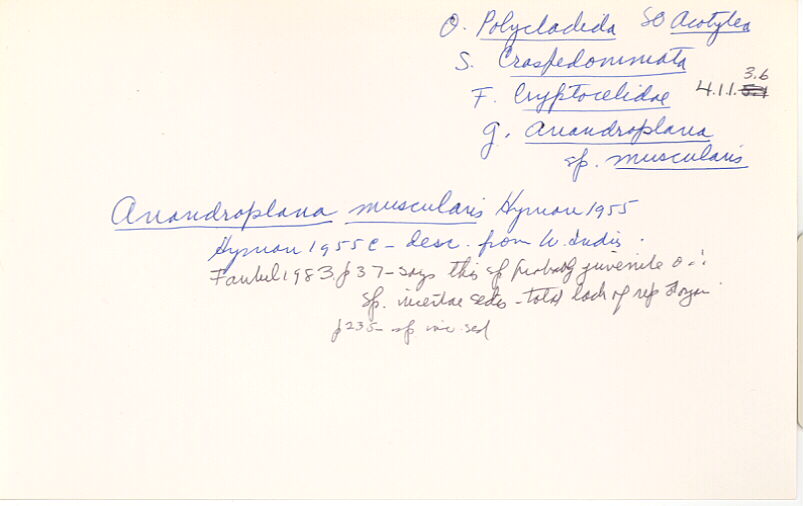 O. Polycladida SO Acotylea
S. Craspedommata
F. Cryptocelidae 4.1.1. 3.6
g. Anandroplana
sp. muscularis
Anandroplana muscularis Hyman 1955
Hyman 1955c - desc. from W. Indis.
Faubel 1983. p 37 - says this sp probably juvenile & ∴
sp. incertae sedis - total lack of rep
p 235 - sp inc sed